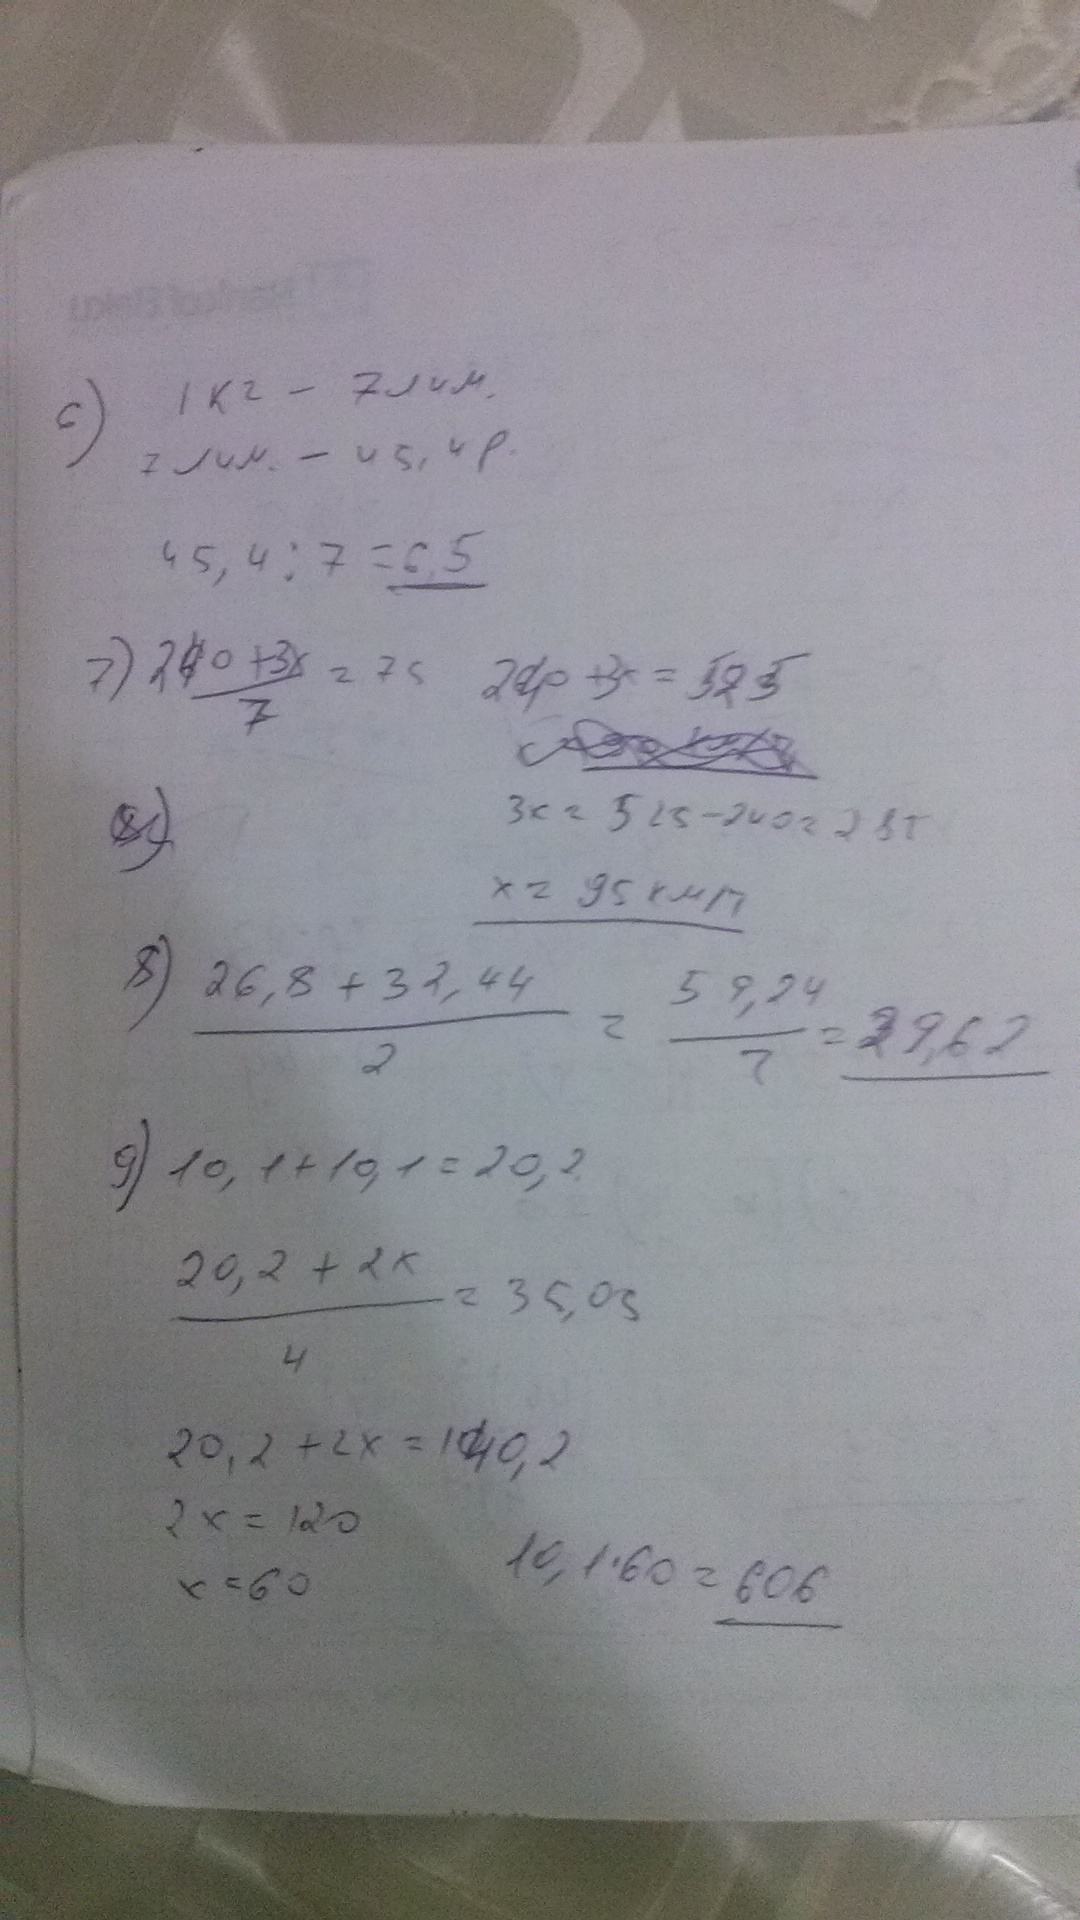 6) 1 кг – 7 лим.
7 лим. – 45,4 р.
45,4 : 7 = 6,5
7) (240 + 3x)/7 = 75 240 + 3x = 525
3x = 525 - 240 = 285
x = 95 км/ч
8) (26,8 + 32,44)/2 = 59,24/2 = 29,62
9) 10,1 + 10,1 = 20,2
(20,2 + 2x)/4 = 35,05
20,2 + 2x = 140,2
2x = 120
x = 60 10,1·60 = 606